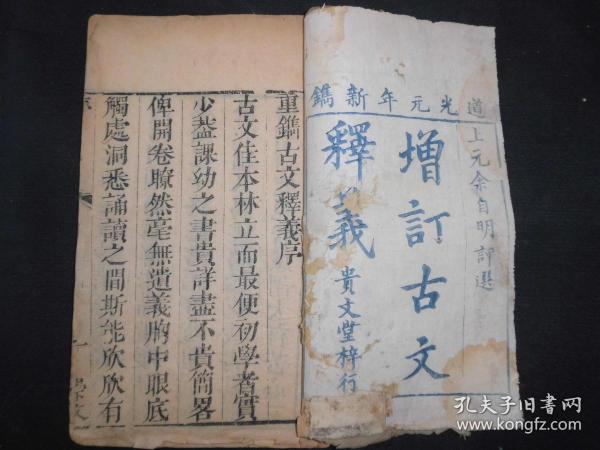 道光元年新鐫
上元余自明評選
增訂古文
釋義
貴文堂梓行
重鐫古文釋義序
古文佳本林立而最便初學者實
少蓋課幼之書貴詳盡不貴簡畧
俾開卷瞭然毫無遺義胸中眼底
觸處洞悉誦讀之間斯能欣欣有
孔夫子旧书网
www.kongfz.com